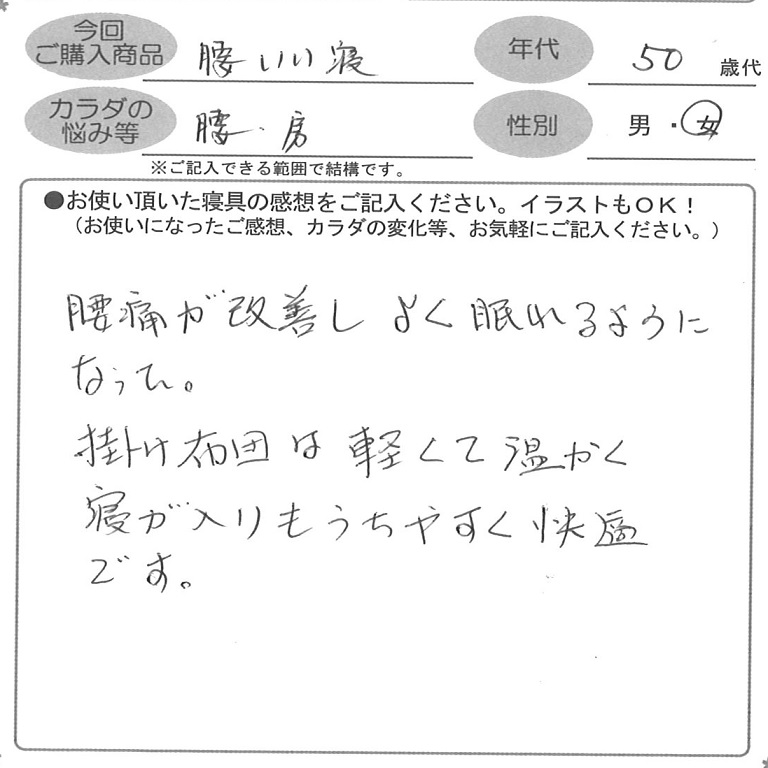 今回
ご購入商品
腰いい寝
年代
50 歳代
カラダの
悩み等
腰・房
性別
男・女
※ご記入できる範囲で結構です。
●お使い頂いた寝具の感想をご記入ください。イラストもOK！
（お使いになったご感想、カラダの変化等、お気軽にご記入ください。）
腰痛が改善し よく眠れるように
なった。
掛け布団は軽くて温かく
寝が入りもうちやすく快適
です。